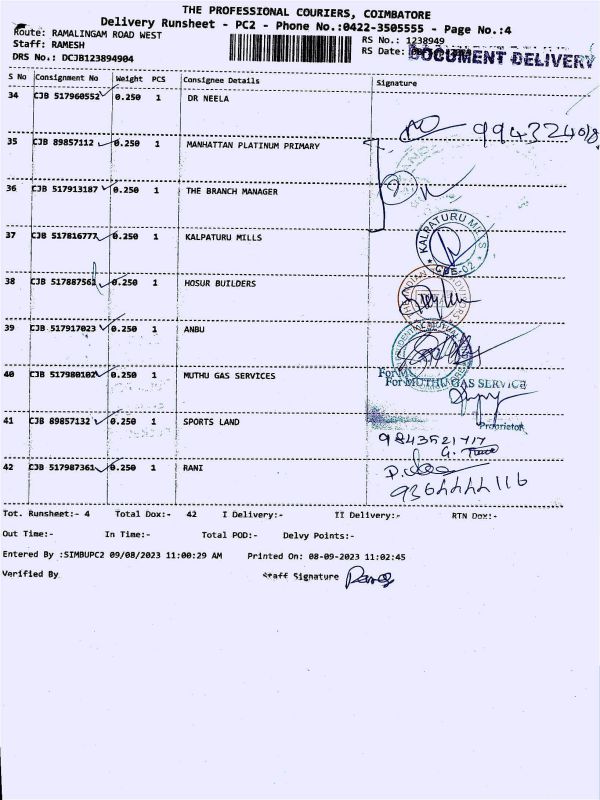 THE PROFESSIONAL COURIERS, COIMBATORE
Delivery Runsheet - PC2 - Phone No.:0422-3505555 - Page No.:4
Route: RAMALINGAM ROAD WEST
RS No.: 1238949
Staff: RAMESH
RS Date:
DOCUMENT DELIVERY
DRS No.: DCJB123894904
S No Consignment No Weight PCS Consignee Details Signature
34 CJB 517960552 0.250 1 DR NEELA
35 CJB 89857112 0.250 1 MANHATTAN PLATINUM PRIMARY
36 CJB 517913187 0.250 1 THE BRANCH MANAGER
37 CJB 517816777 0.250 1 KALPATURU MILLS
KALPATURU MILLS
CBE-02
38 CJB 517887562 0.250 1 HOSUR BUILDERS
39 CJB 517917023 0.250 1 ANBU
40 CJB 517980102 0.250 1 MUTHU GAS SERVICES
For MUTHU GAS SERVICE
Proprietor
41 CJB 89857132 0.250 1 SPORTS LAND
42 CJB 517987361 0.250 1 RANI
Tot. Runsheet:- 4 Total Dox:- 42 I Delivery:- II Delivery:- RTN Dox:-
Out Time:- In Time:- Total POD:- Delvy Points:-
Entered By :SIMBUPC2 09/08/2023 11:00:29 AM Printed On: 08-09-2023 11:02:45
Verified By Staff Signature